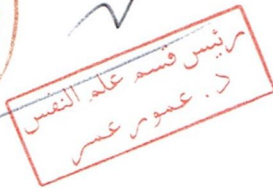 رئيس قسم علم النفس
د. عمور عمر